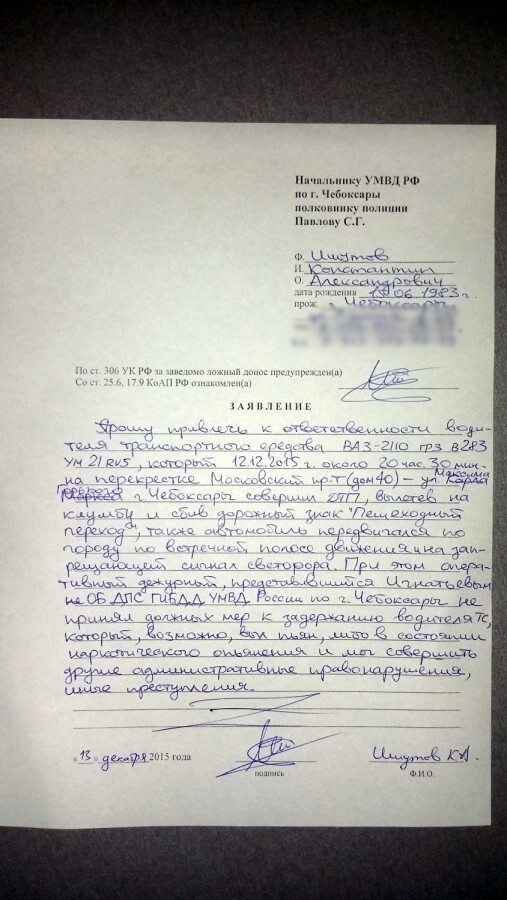 Начальнику УМВД РФ
по г. Чебоксары
полковнику полиции
Павлову С.Г.
Ф. Ишутов
И. Константин
О. Александрович
дата рождения 19 06.1983 г.
прож. г. Чебоксары,
По ст. 306 УК РФ за заведомо ложный донос предупрежден(а)
Со ст. 25.6, 17.9 КоАП РФ ознакомлен(а)
ЗАЯВЛЕНИЕ
Прошу привлечь к ответственности води-
теля транспортного средства ВАЗ-2110 грз В283
УМ 21 RUS, который 12.12.2015 г. около 20 час. 30 мин.
на перекрестке Московский пр-т (дом 40) – ул. Карла Максима
Маркса Горького г. Чебоксары совершил ДТП, вылетев на
клумбу и сбив дорожный знак "Пешеходный
переход", также автомобиль передвигался по
городу по встречной полосе движения и на зап-
рещающет сигнал светофора. При этом опера-
тивный дежурный, представившийся Игнатьевым
не ОБ ДПС ГИБДД УМВД России по г. Чебоксары не
принял должных мер к задержанию водителя ТС,
который, возможно, был пьян, либо в состоянии
наркотического опьянения и мог совершить
другие административные правонарушения,
иные преступления.
« 13 » декабря 2015 года
подпись
Ишутов К.А.
Ф.И.О.